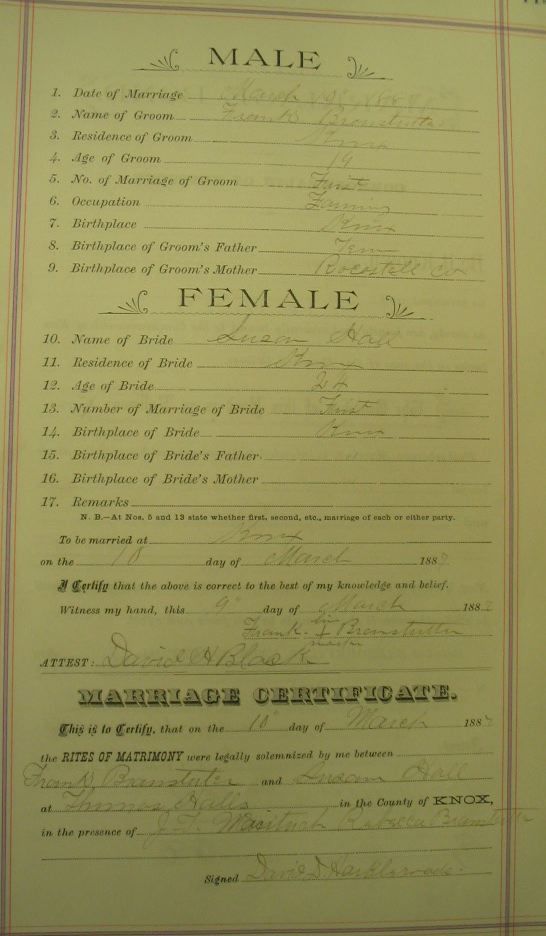 MALE
1. Date of Marriage March
2. Name of Groom Frank Branstutter
3. Residence of Groom Knox
4. Age of Groom 19
5. No. of Marriage of Groom First
6. Occupation Farming
7. Birthplace Knox
8. Birthplace of Groom's Father Tenn
9. Birthplace of Groom's Mother Rockcastle Co
FEMALE
10. Name of Bride Susan Hall
11. Residence of Bride Knox
12. Age of Bride 24
13. Number of Marriage of Bride First
14. Birthplace of Bride Knox
15. Birthplace of Bride's Father
16. Birthplace of Bride's Mother
17. Remarks
N. B.—At Nos. 5 and 13 state whether first, second, etc., marriage of each or either party.
To be married at Knox
on the 10 day of March 188
I Certify that the above is correct to the best of my knowledge and belief.
Witness my hand, this 9" day of March 188
his
Frank X Branstutter
mark
ATTEST: David H Black
MARRIAGE CERTIFICATE.
This is to Certify, that on the 10" day of March 188
the RITES OF MATRIMONY were legally solemnized by me between
Frank Branstuter and Susan Hall
at Thomas Halls in the County of KNOX,
in the presence of J. F.
Signed David